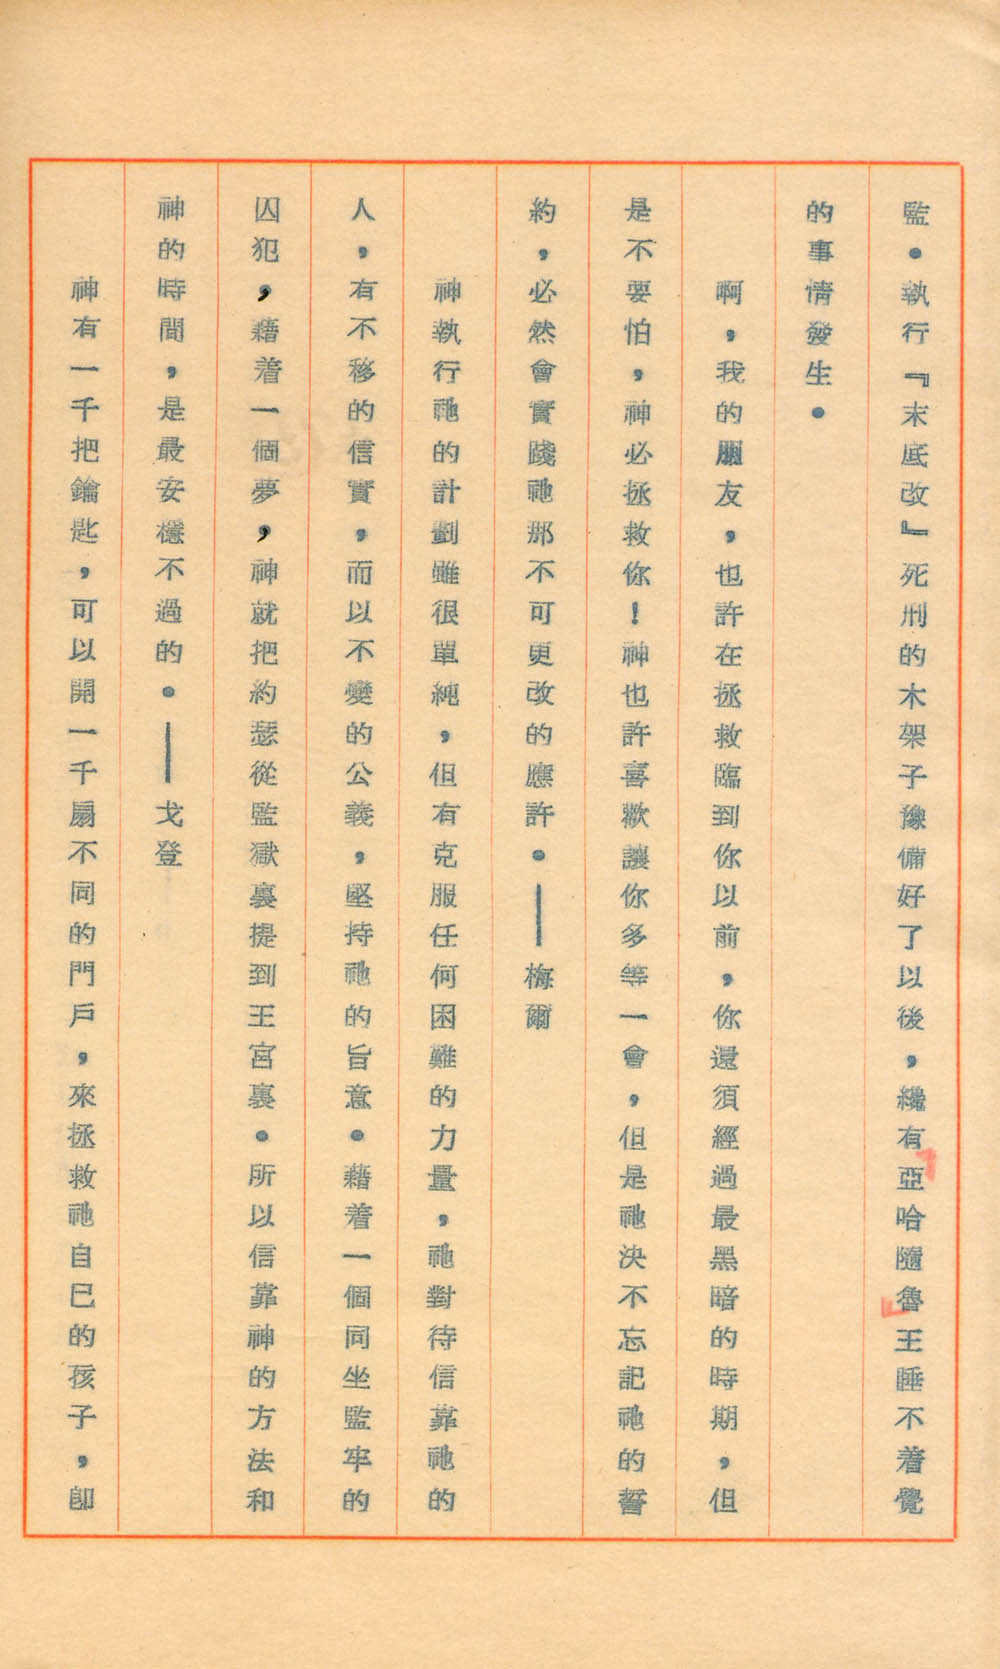 監．執行『末底改』死刑的木架子豫備好了以後，纔有亞哈隨魯王睡不着覺
的事情發生．
啊，我的朋友，也許在拯救臨到你以前，你還須經過最黑暗的時期，但
是不要怕，神必拯救你！神也許喜歡讓你多等一會，但是祂決不忘記祂的誓
約，必然會實踐祂那不可更改的應許．——梅爾
神執行祂的計劃雖很單純，但有克服任何困難的力量，祂對待信靠祂的
人，有不移的信實，而以不變的公義，堅持祂的旨意．藉着一個同坐監牢的
囚犯，藉着一個夢，神就把約瑟從監獄裏提到王宮裏．所以信靠神的方法和
神的時間，是最安穩不過的．——戈登
神有一千把鑰匙，可以開一千扇不同的門戶，來拯救祂自己的孩子，卽